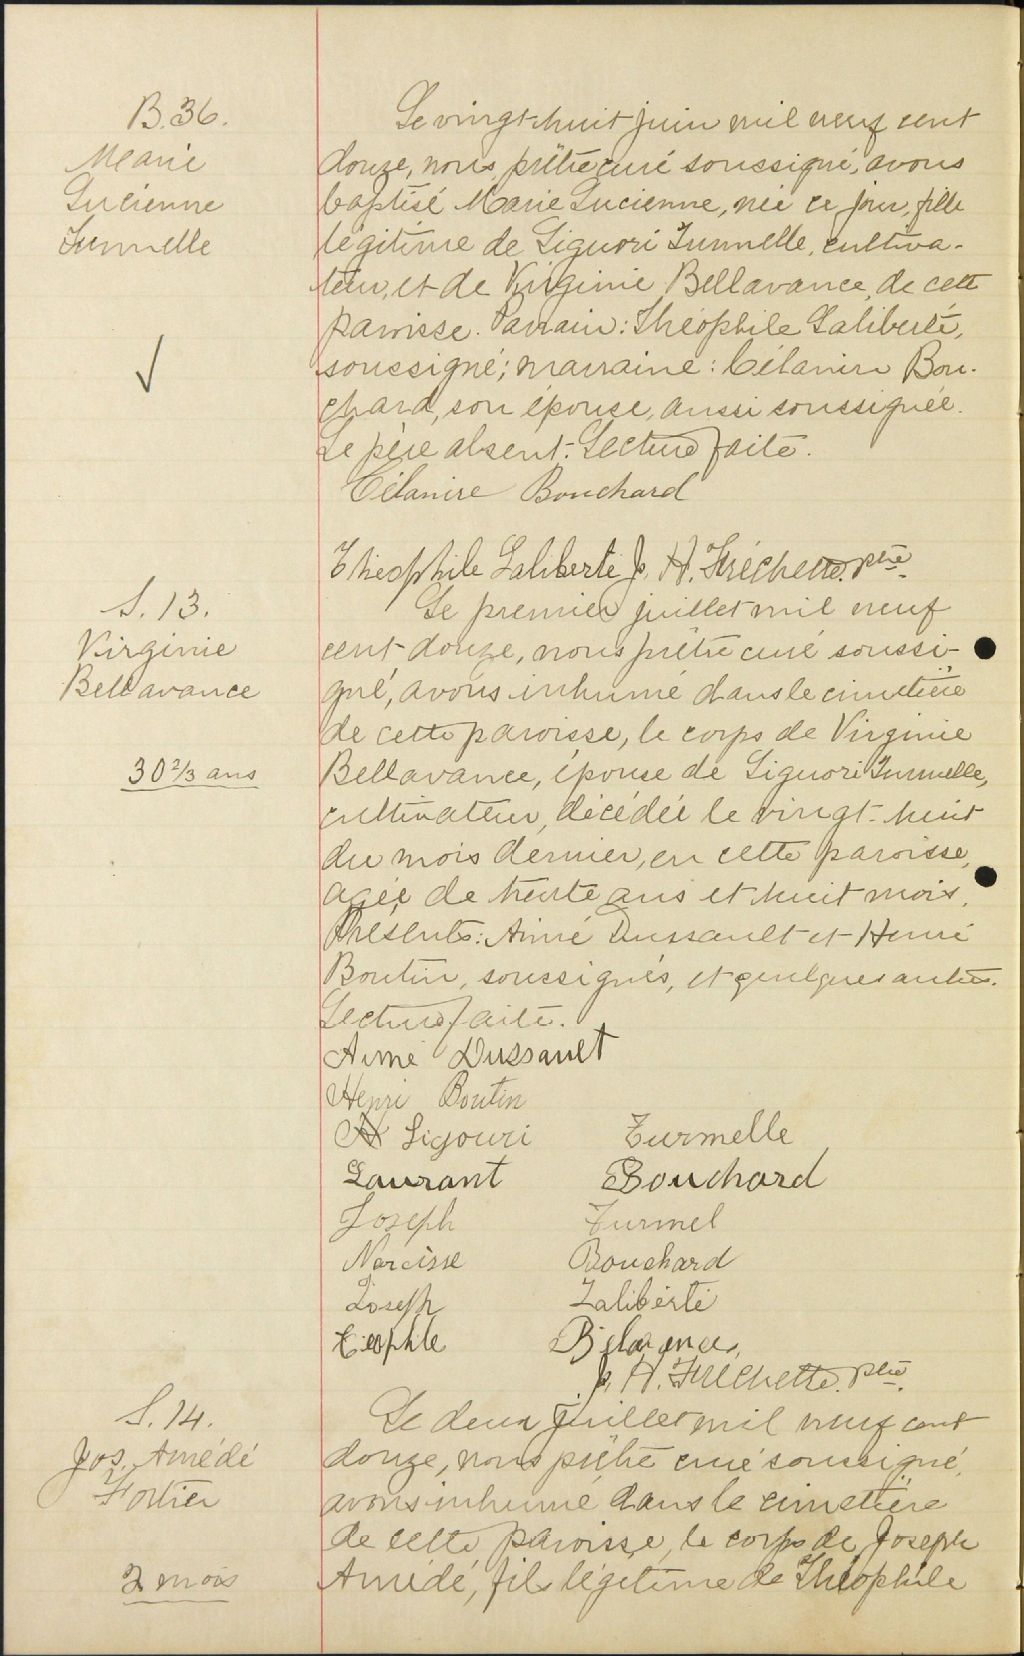 B.36.
Marie
Lucienne
Turmelle
Le vingt-huit juin mil neuf cent
douze, nous, prêtre curé soussigné, avons
baptisé Marie Lucienne, née ce jour, fille
légitime de Liguori Turmelle, cultiva-
teur, et de Virginie Bellavance, de cette
paroisse. Parrain: Théophile Laliberté,
soussigné; marraine: Célanire Bou-
chard, son épouse, aussi soussignée.
Le père absent. Lecture faite.
Célanire Bouchard
Théophile Laliberté J. H. Fréchette. ptre.
S. 13.
Virginie
Bellavance
30 2/3 ans
Le premier juillet mil neuf
cent douze, nous prêtre curé soussi-
gné, avons inhumé dans le cimetière
de cette paroisse, le corps de Virginie
Bellavance, épouse de Liguori Turmelle,
cultivateur, décédée le vingt-huit
du mois dernier, en cette paroisse,
agée de trente ans et huit mois.
Présents: Aimé Dussault et Henri
Boutin, soussignés, et quelques autres.
Lecture faite.
Aimé Dussault
Henri Boutin
Ligouri Turmelle
Laurant Bouchard
Joseph Turmel
Narcisse Bouchard
Joseph Laliberté
J. H. Fréchette. ptre.
S. 14.
Jos. Amédé
Fortier
2 mois
Le deux juillet mil neuf cent
douze, nous prêtre curé soussigné,
avons inhumé dans le cimetière
de cette paroisse, le corps de Joseph
Amédé, fils légitime de Théophile